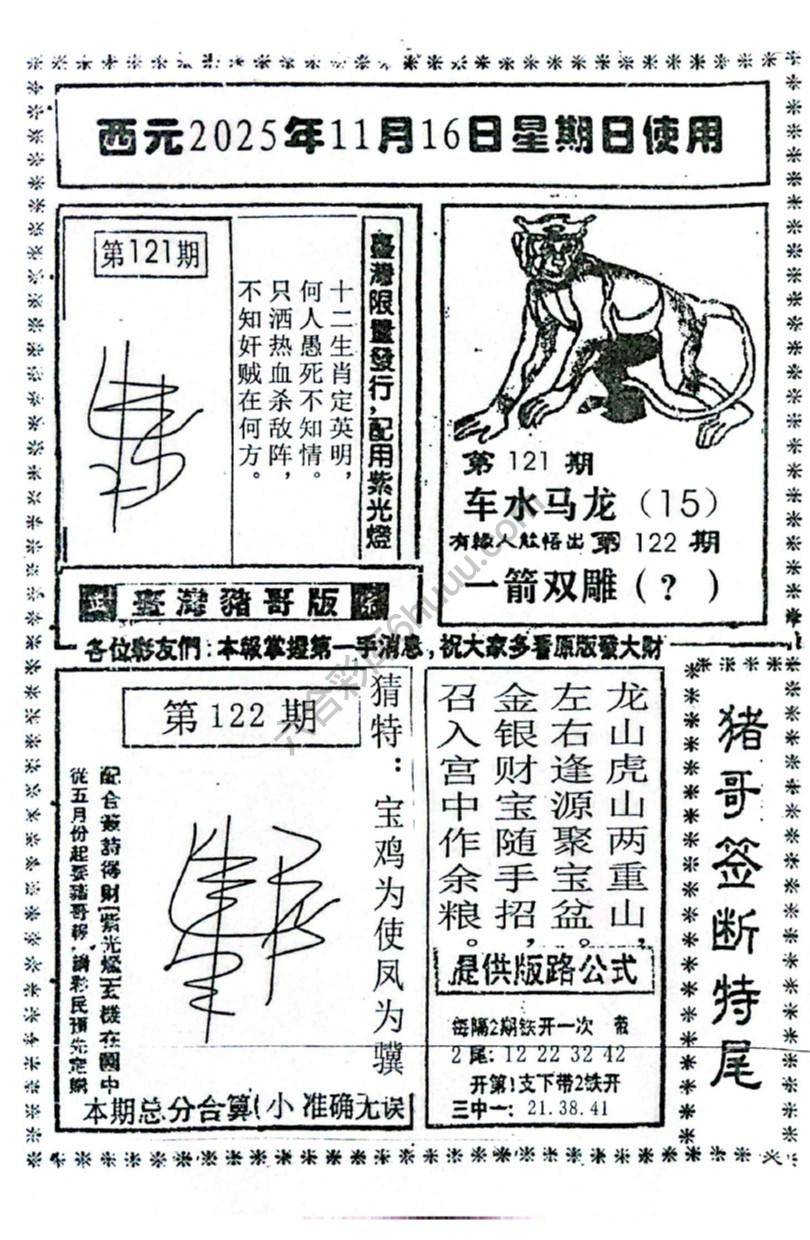 西元2025年11月16日星期日使用
第121期
臺灣限量發行，配用紫光燈
十二生肖定英明，
何人愚死不知情。
只洒热血杀敌阵，
不知奸贼在何方。
第 121 期
车水马龙（15）
有緣人能悟出 第 122 期
一箭双雕（？）
臺灣豬哥版
各位彩友們：本報掌握第一手消息，祝大家多看原版發大財
第 122 期
猜特：宝鸡为使凤为骥
配合簽詩得財『紫光燈』玄機在圖中
從五月份起要豬哥報，請彩民預先定購
本期总分合算（小 准确无误
龙山虎山两重山，
左右逢源聚宝盆。
金银财宝随手招，
召入宫中作余粮。
提供版路公式
每隔2期铁开一次
2尾：12 22 32 42
开第1支下带2铁开
三中一：21.38.41
猪哥签断特尾
六合彩
6huuu.com